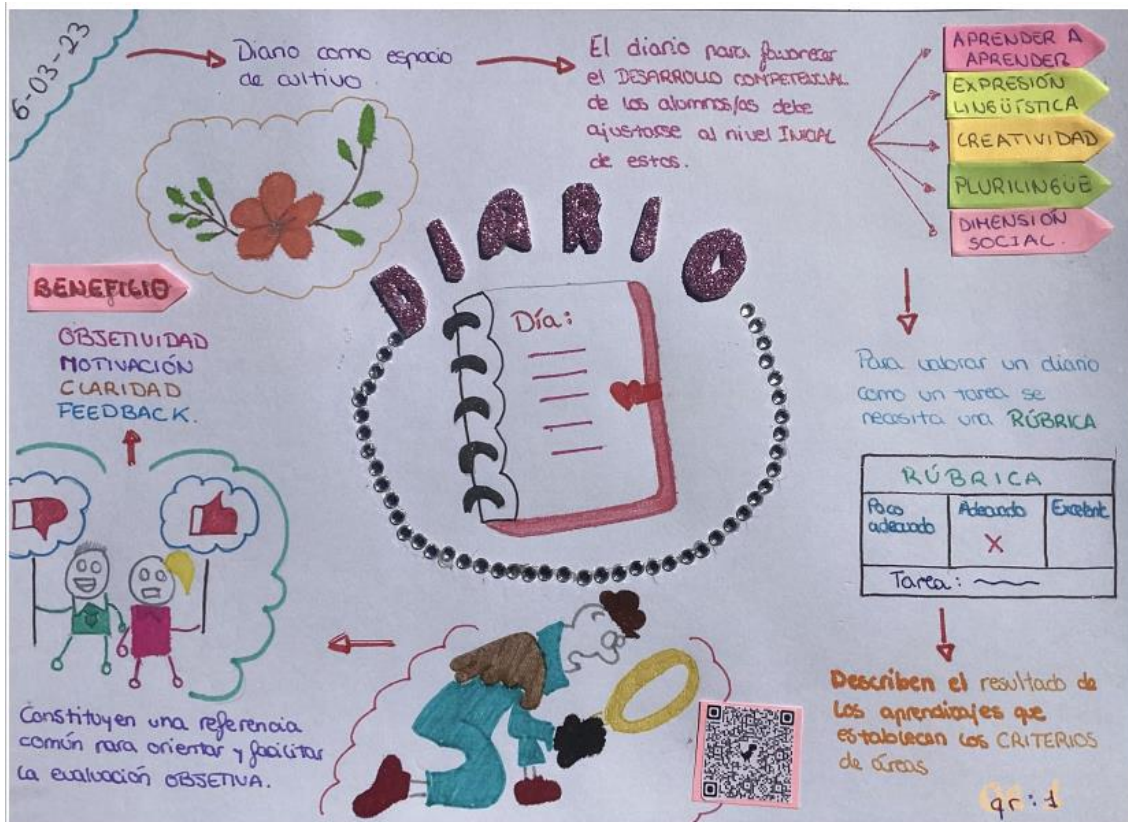 6-03-23
Diario como espacio
de cultivo.
El diario para favorecer
el DESARROLLO COMPETENCIAL
de los alumnos/as debe
ajustarse al nivel INICIAL
de estos.
APRENDER A
APRENDER
EXPRESIÓN
LINGÜÍSTICA
CREATIVIDAD
PLURILINGÜE
DIMENSIÓN
SOCIAL.
DIARIO
Día:
BENEFICIO
OBJETIVIDAD
MOTIVACIÓN
CLARIDAD
FEEDBACK.
Para valorar un diario
como un tarea se
necesita una RÚBRICA
RÚBRICA
Poco
adecuado
Adecuado
Excelente
X
Tarea:
Describen el resultado de
los aprendizajes que
establecen los CRITERIOS
de áreas
Constituyen una referencia
común para orientar y facilitar
la evaluación OBJETIVA.
qr: 1